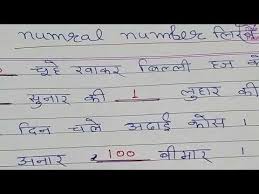 numral number लिखें
चूहे खाकर बिल्ली हज को
सुनार की 1 लुहार की
दिन चले अढाई कोस ।
अनार 100 बीमार ।